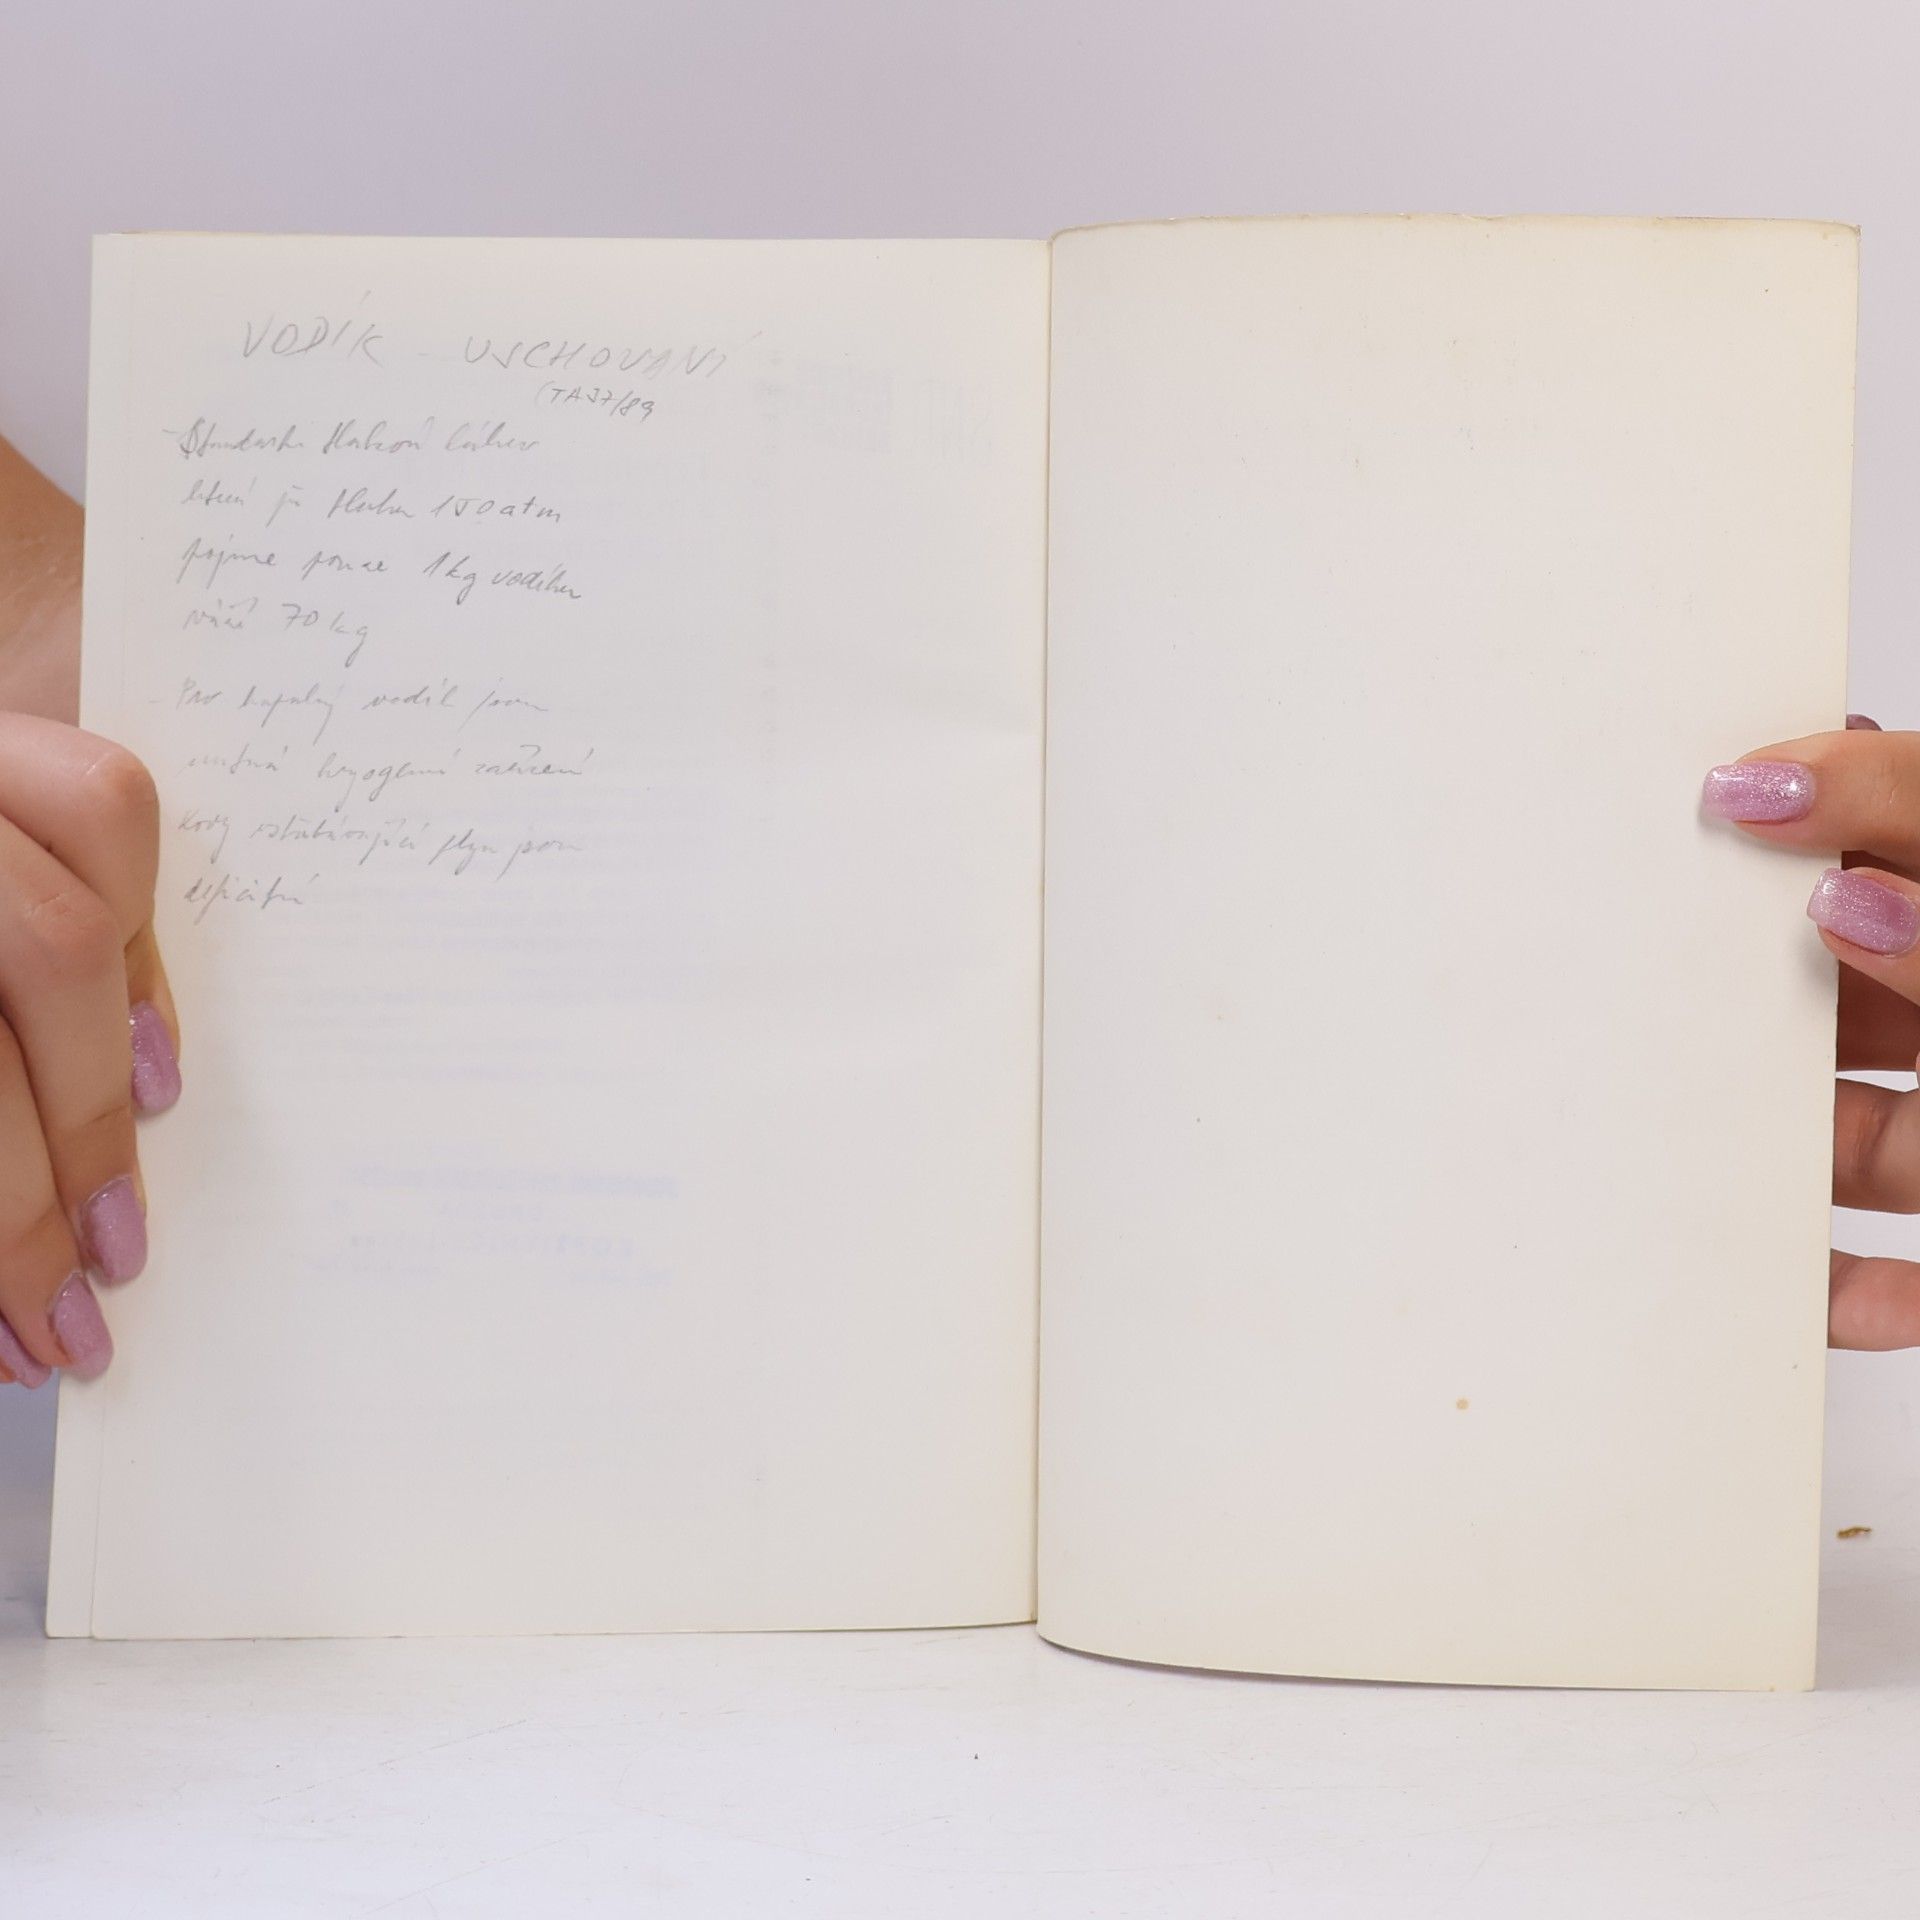 VODÍK - USCHOVANÍ
(TA 37/89
- Standartní tlaková láhev
která je tlaku 150 atm
pojme pouze 1 kg vodíku
váží 70 kg
- Pro kapalný vodík jsou
nutná kryogenní zařízení
Kovy vstřebávající plyn jsou
deficitní